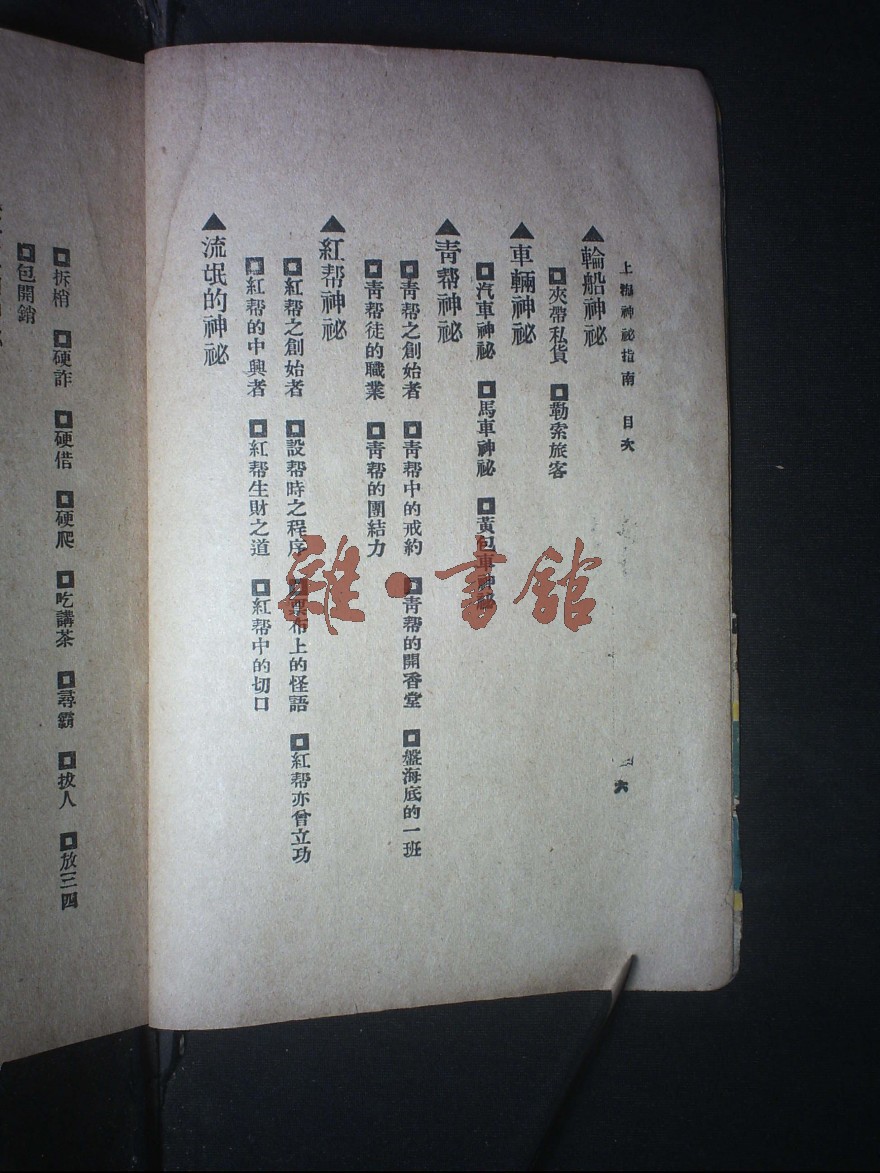 上海神祕指南 目次
六
▲輪船神祕
◘夾帶私貨 ◘勒索旅客
▲車輛神祕
◘汽車神祕 ◘馬車神祕 ◘黃包車神祕
▲靑帮神祕
◘靑帮之創始者 ◘靑帮中的戒約 ◘靑帮的開香堂 ◘盤海底的一班
◘靑帮徒的職業 ◘靑帮的團結力
▲紅帮神祕
◘紅帮之創始者 ◘設帮時之程序 ◘票布上的怪語 ◘紅帮亦曾立功
◘紅帮的中興者 ◘紅帮生財之道 ◘紅帮中的切口
▲流氓的神祕
◘拆梢 ◘硬詐 ◘硬借 ◘硬爬 ◘吃講茶 ◘尋霸 ◘拔人 ◘放三四
◘包開銷
雜·書館